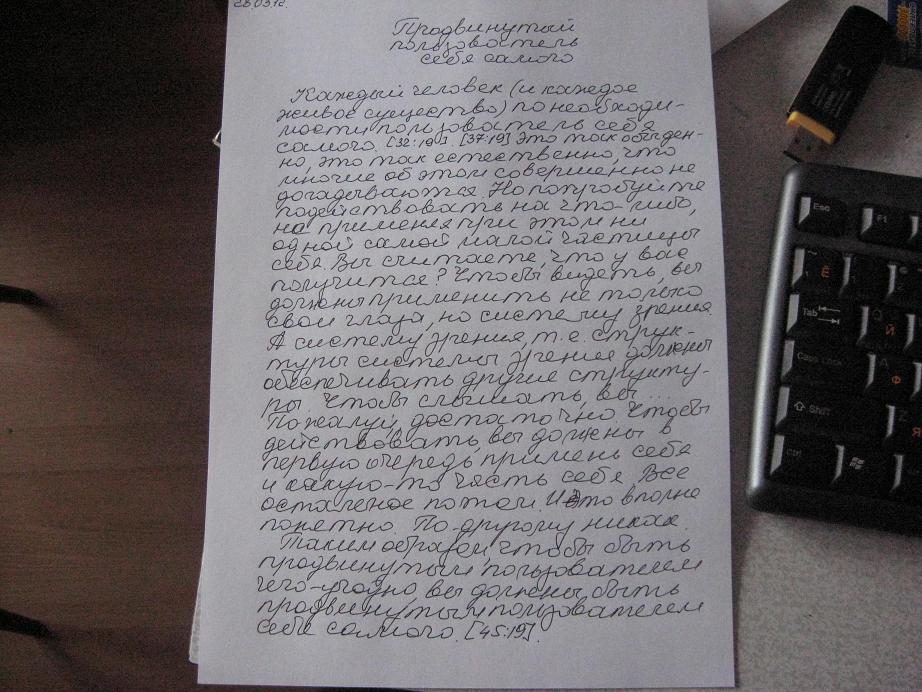 28.03.12г.
Продвинутый
пользователь
себя самого
Каждый человек (и каждое
живое существо) по необходи-
мости пользователь себя
самого. [32:19]. [37:19] Это так обыден-
но, это так естественно, что
многие об этом совершенно не
догадываются. Но попробуйте
подействовать на что-либо,
не применяя при этом ни
одной самой малой частицы
себя. Вы считаете, что у вас
получится? Чтобы видеть, вы
должны применить не только
свои глаза, но систему зрения.
А систему зрения, т.е. струк-
туры системы зрения должны
обеспечивать другие структу-
ры. Чтобы слышать, вы...
Пожалуй, достаточно. Чтобы
действовать, вы должны в
первую очередь, примень себя
и какую-то часть себя. Все
остальное потом. И это вполне
понятно. По-другому никак.
Таким образом, чтобы быть
продвинутым пользователем
чего-угодно, вы должны быть
продвинутым пользователем
себя самого. [45:19].
Esc
F1
~
Ё
1
2
Tab
Q
Й
Caps Lock
A
Ф
Shift
Z
Я
Ctrl